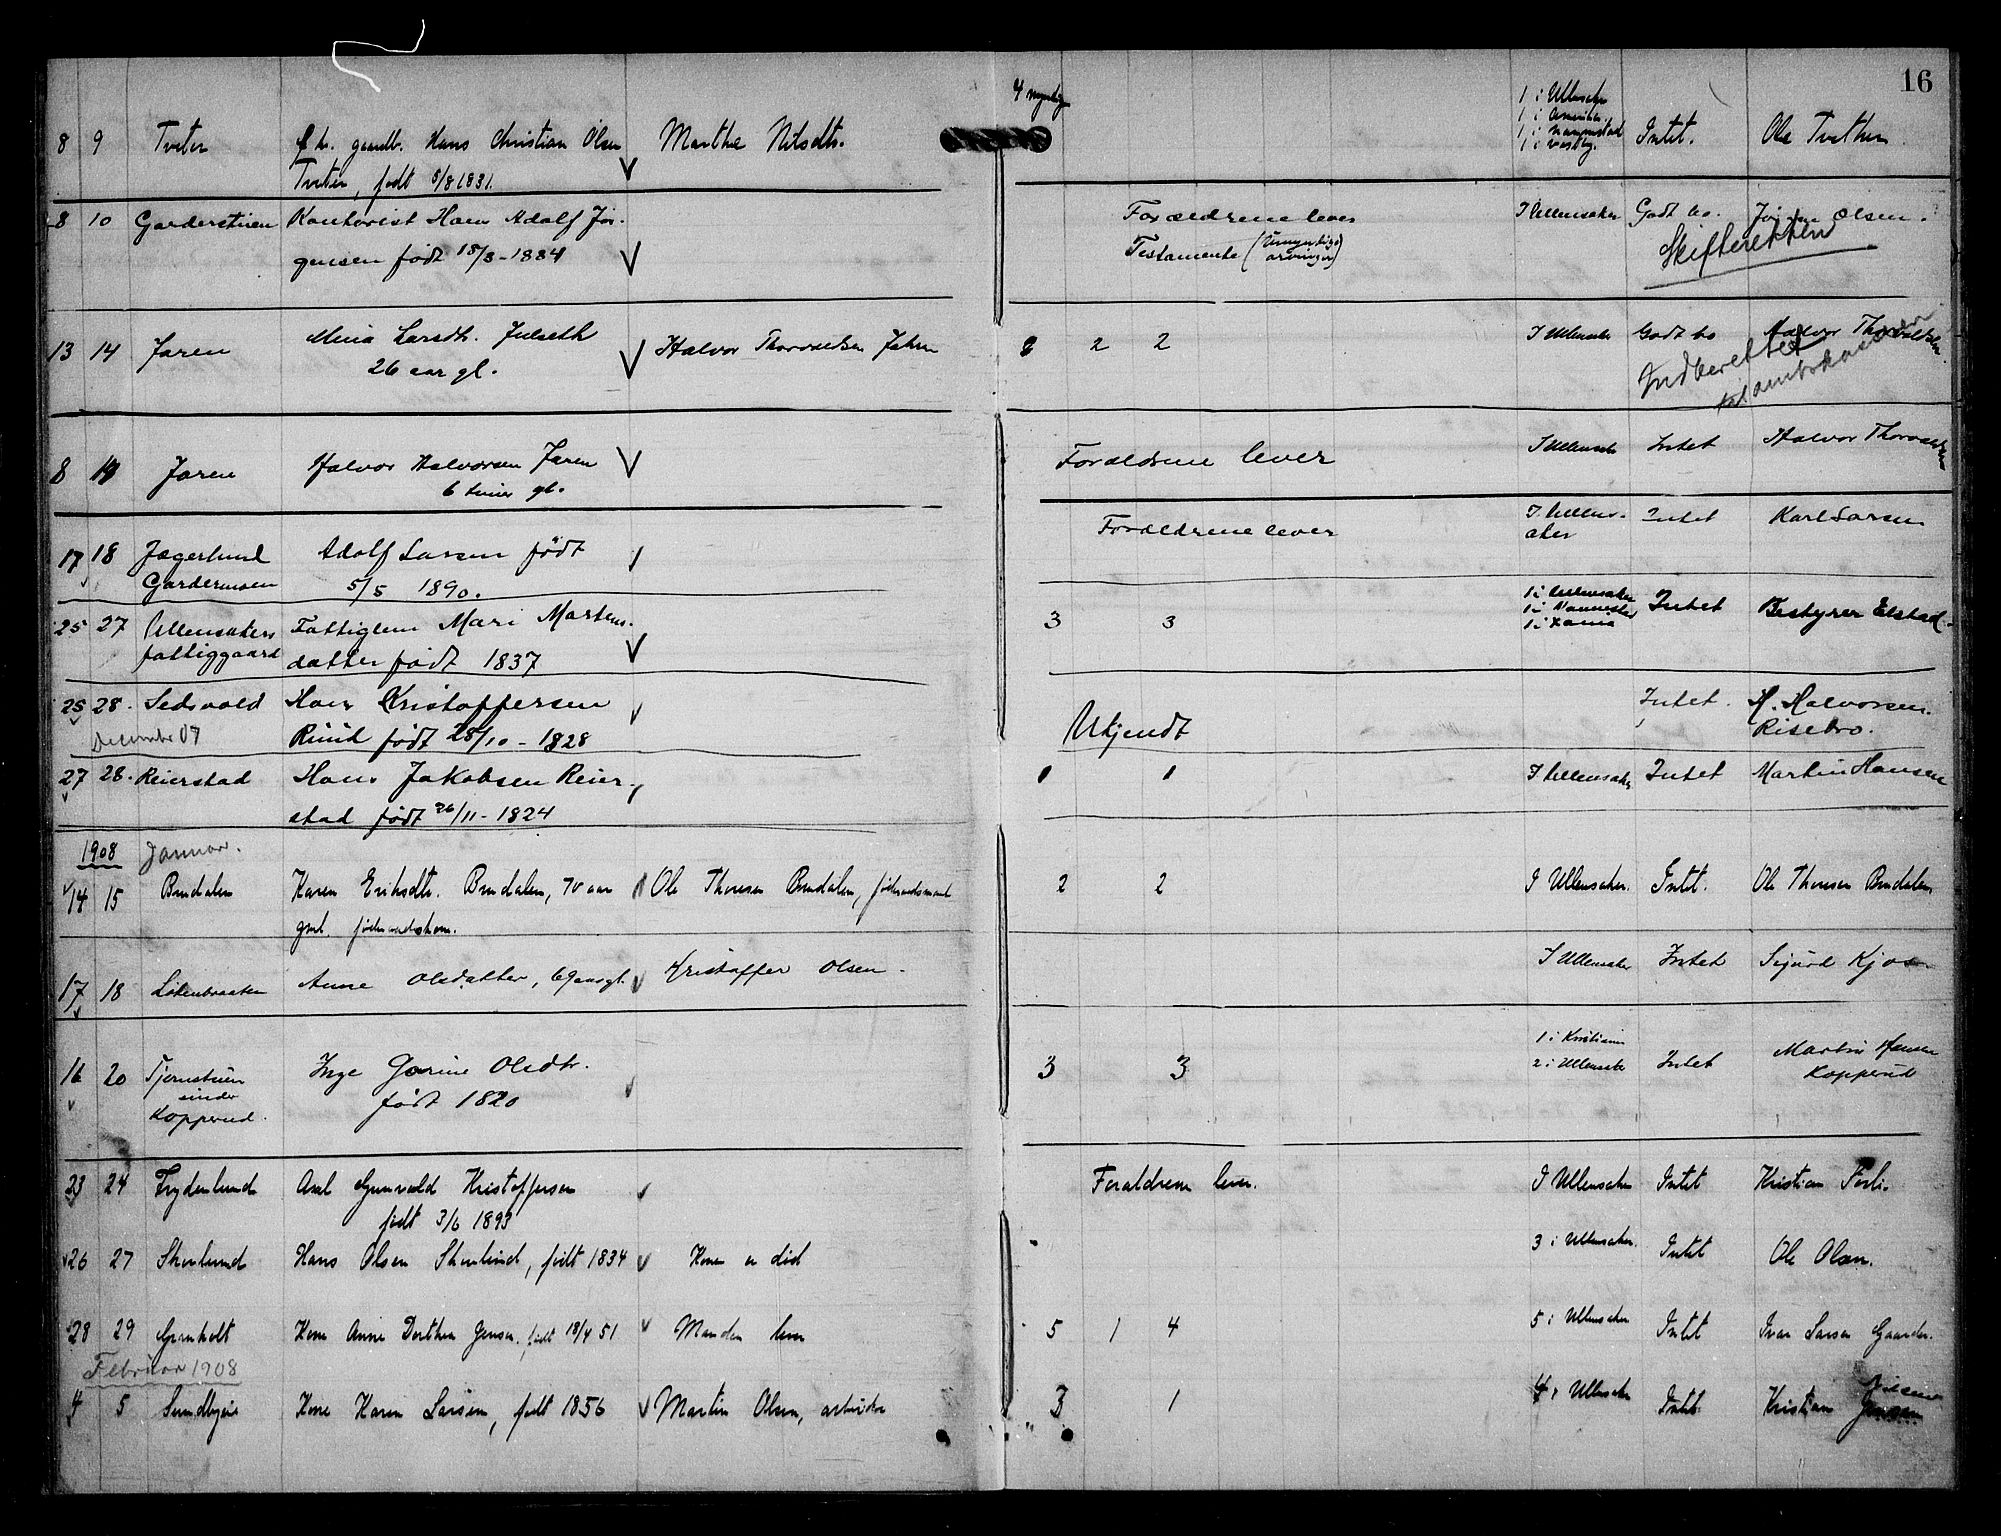 16
4 myndige
1 i Ullensaker
1 i Amerika
1 i Nannestad
1 i Vestby.
8 9 Tveter f. hv. gaardb. Hans Christian Olsen Marthe Nilsdtr. Intet. Ole Tvether
Tveter, født 8/8 1831.
8 10 Garderstuen Kontorist Hans Adolf Jør- Forældrene lever I Ullensaker Godt bo. Jørgen Olsen.
gensen født 18/3-1884 Testamente (Umyndige arvinger) Skifteretten
13 14 Jaren Mina Larsdtr. Julseth Halvor Thorvaldsen Jahren 2 2 2 I Ullensaker Godt bo Halvor Thorvaldsen
26 aar gl. Indberettet
til amtskassereren
8 14 Jaren Halvor Halvorsen Jaren Forældrene lever I Ullensaker Intet Halvor Thorvaldsen
6 timer gl.
17 18 Jægerlund Adolf Larsen født Forældrene lever I Ullens- Intet Karl Larsen
Gardermoen 5/5 1890. aker
25 27 Ullensakers Fattiglem Mari Martens- 3 3 1 i Ullensaker Intet Bestyrer Elstad.
1 i Nannestad
fattiggaard datter født 1837
25 28. Sedvold Hans Kristoffersen Ukjendt Intet. H. Halvorsen
December 07 Ruud født 28/10-1828 Risebro.
27 28. Reierstad Hans Jakobsen Reier- 1 1 I Ullensaker Intet Martin Hansen
stad født 26/11-1824
1908 Januar.
14 15 Brudalen Karen Eriksdtr. Brudalen, 70 aar Ole Thoresen Brudalen, føderaadsmand 2 2 I Ullensaker. Intet. Ole Thoresen Brudalen
gml. føderaadskone.
17 18 Løkenbraaten Anne Olsdatter, 69 aar gl. Kristoffer Olsen. I Ullensaker Intet Sigurd Kjos
16 20 Tjernstuen Inge Gorine Olsdtr. 3 3 1 i Kristiania Intet Martin Hansen
under født 1820 2 i Ullensaker Kopperud
Kopperud.
23 24 Frydenlund Axel Gunvald Kristoffersen Forældrene lever. I Ullensaker Intet Kristian
født 3/6 1893
26 27 Skovlund Hans Olsen Skovlund, født 1834 Konen er død 3 i Ullensaker. Intet Ole Olsen.
28 29 Grønholt Kone Anne Dorthea Jensen, født 18/4 51 Manden lever 5 1 4 5 i Ullensaker Intet Ivar Larsen Gaarder.
Februar 1908
4 5 Sundbyeie Kone Karen Larsen, født 1856 Martin Olsen, arbeider 3 1 4 i Ullensaker Intet. Kristian Jensen
Nilsen